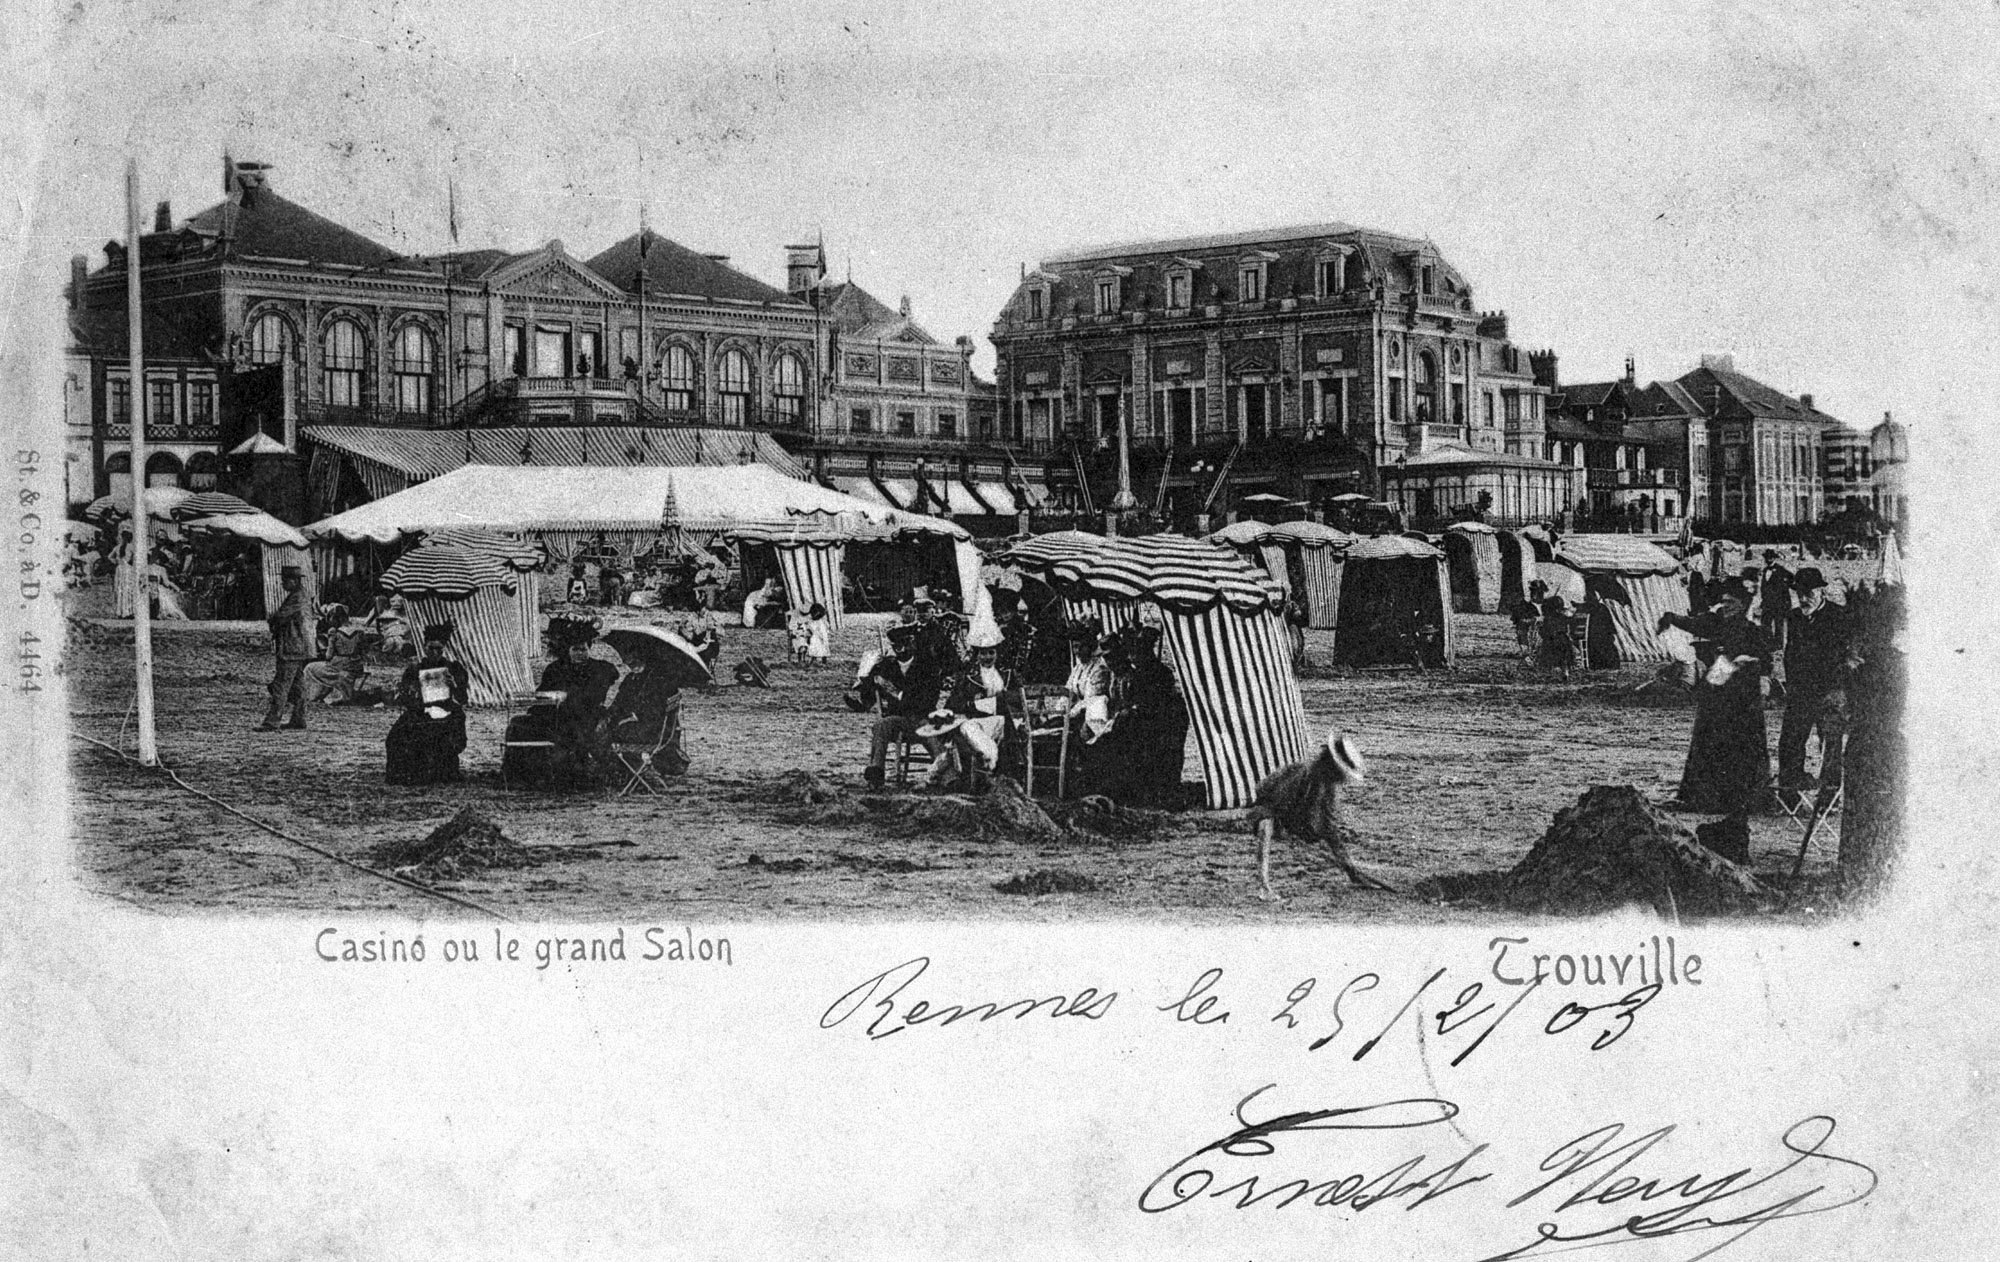 St. & Co, à D. 4464
Casino ou le grand Salon
Trouville
Rennes le 25/2/03
Ernest